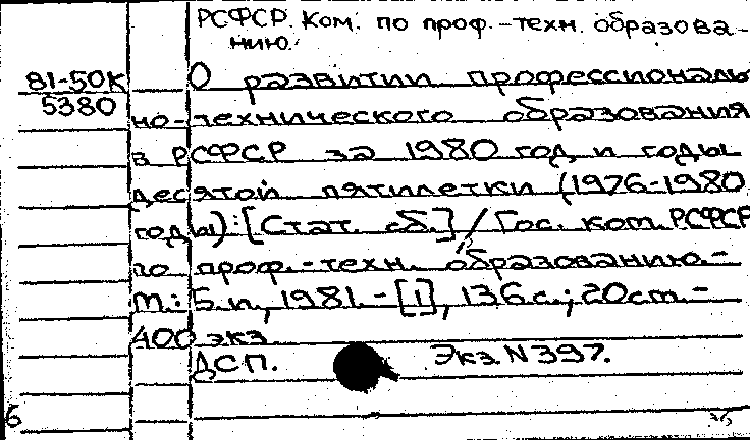 РСФСР. Ком. по проф.-техн. образова-
нию.
81-50К О развитии профессиональ
5380
но-технического образования
в РСФСР за 1980 год и годы
десятой пятилетки (1976-1980
годы): [Стат. сб.] / Гос. ком. РСФСР
по проф.-техн. образованию.-
М.: Б.и., 1981.-[1], 136 с.; 20 см.-
400 экз
ДСП. Экз N 397.
6